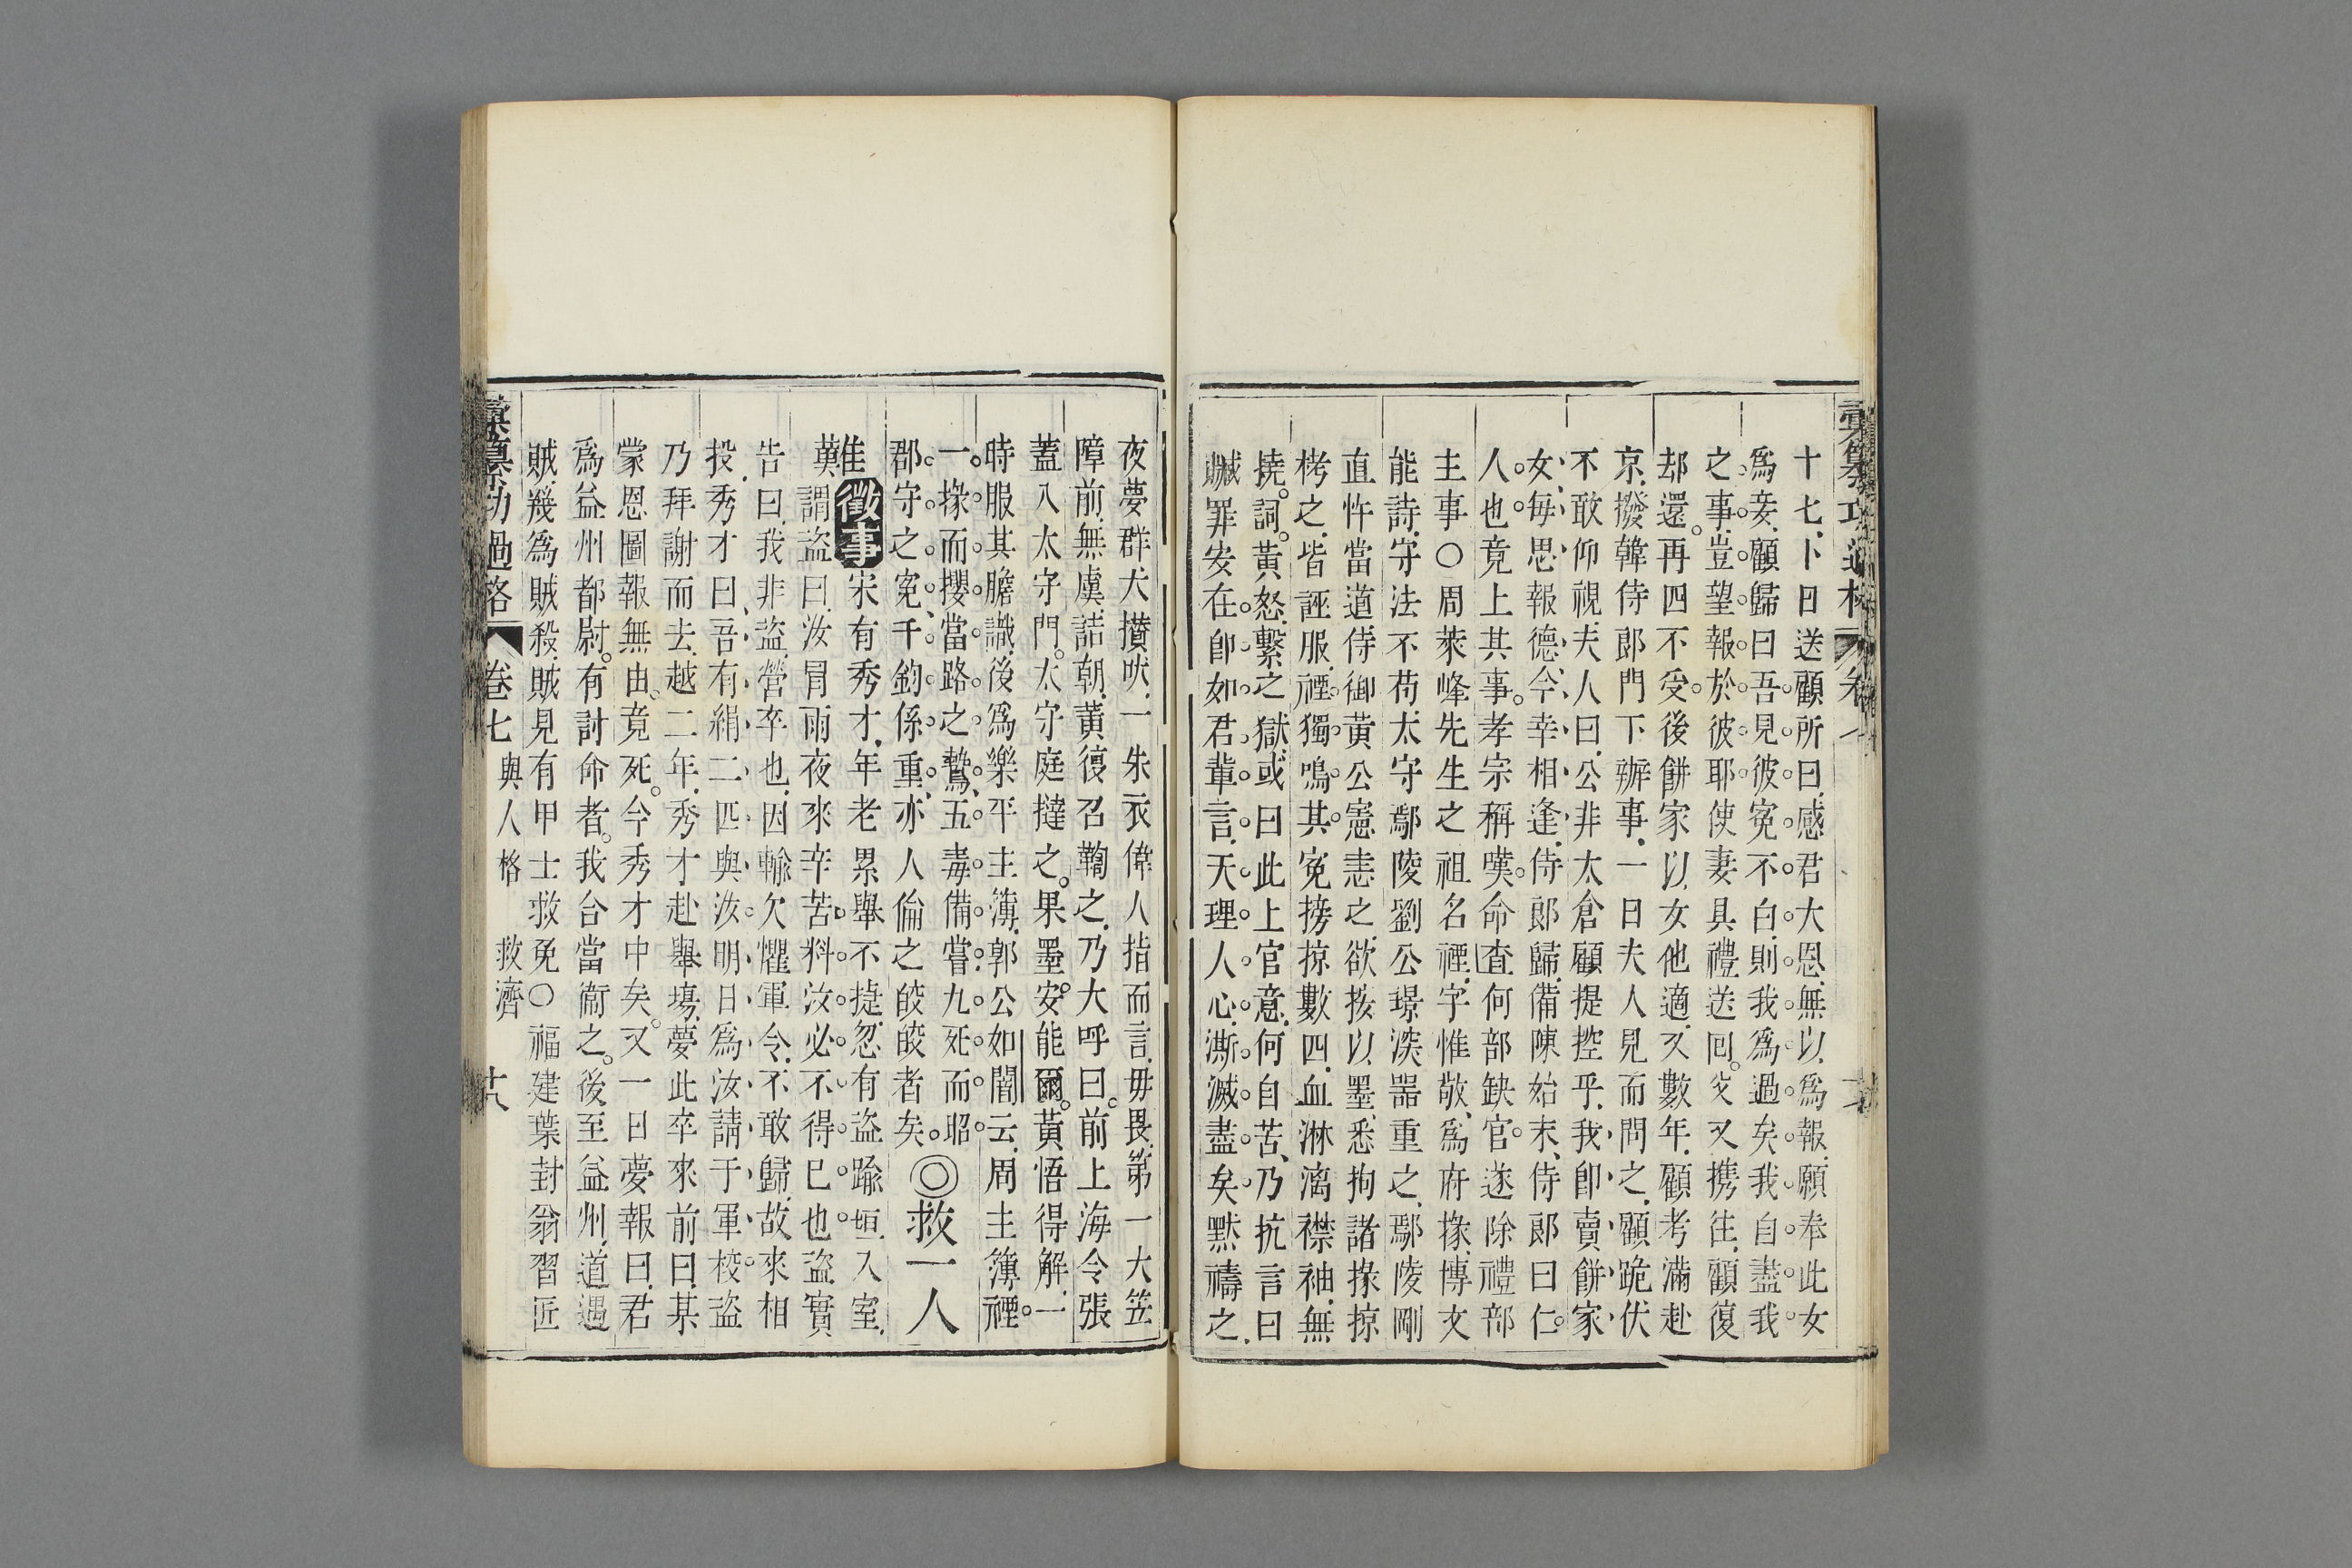 彙纂功過格
十七卜日送顧所曰感君大恩無以爲報願奉此女
爲妾顧歸曰吾見彼寃不白則我爲過矣我自盡我
之事豈望報於彼耶使妻具禮送回父又携往顧復
却還再四不受後餅家以女他適又數年顧考滿赴
京撥韓侍郎門下辦事一日夫人見而問之顧跪伏
不敢仰視夫人曰公非太倉顧提控乎我卽賣餅家
女每思報德今幸相逢侍郎歸備陳始末侍郎曰仁
人也竟上其事孝宗稱嘆命查何部缺官遂除禮部
主事○周萊峰先生之祖名禋字惟敬爲府掾博文
能詩守法不苟太守鄢陵劉公璟深器重之鄢陵剛
直忤當道侍御黃公憲恚之欲按以墨悉拘諸掾掠
栲之皆誣服禋獨鳴其寃搒掠數四血淋漓襟袖無
撓詞黃怒繫之獄或曰此上官意何自苦乃抗言曰
贓罪安在卽如君輩言天理人心澌滅盡矣黙禱之
夜夢群犬攢吠一朱衣偉人指而言毋畏第一大笠
障前無虞詰朝黃復召鞫之乃大呼曰前上海令張
蓋入太守門太守庭撻之果墨安能爾黃悟得解一
時服其膽識後爲樂平主簿郭公如闇云周主簿禋
一掾而攖當路之鷙五毒備嘗九死而昭
郡守之寃千鈞係重亦人倫之皎皎者矣◎救一人
准
徵事宋有秀才年老累舉不㨗忽有盜踰垣入室
謂盜曰汝冐雨夜來辛苦料汝必不得已也盜實
告曰我非盜營卒也因輸欠懼軍令不敢歸故來相
投秀才曰吾有絹二匹與汝明日爲汝請于軍校盜
乃拜謝而去越二年秀才赴舉塲夢此卒來前曰某
蒙恩圖報無由竟死今秀才中矣又一日夢報曰君
爲益州都尉有討命者我合當衞之後至益州道遇
賊㡬爲賊殺賊見有甲士救免○福建葉封翁習匠
彙纂功過格 卷七 與人格 救濟 十八